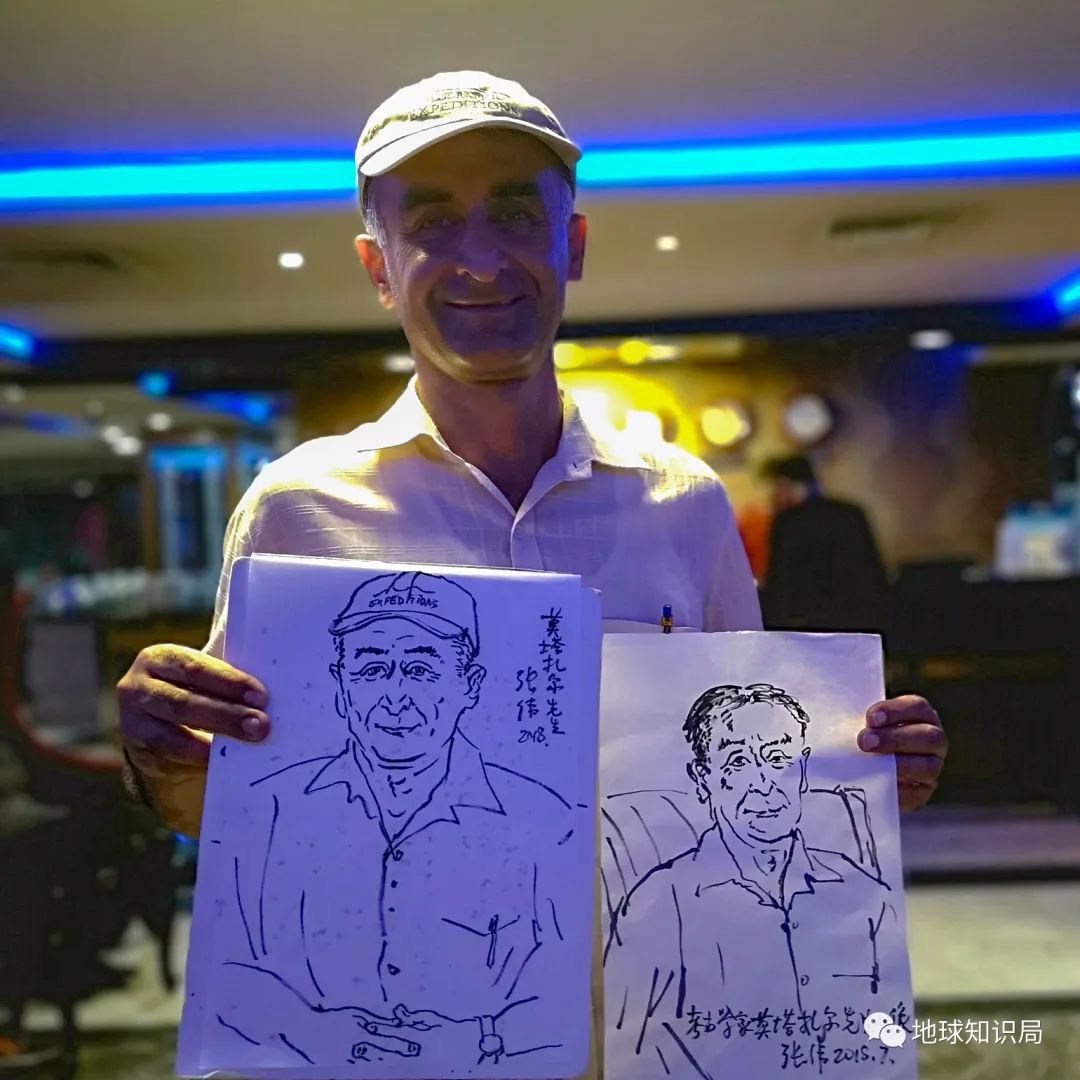 EXPEDITIONS
EXPEDITIONS
莫塔扎尔先生
张伟
2018.
考古学家莫塔扎尔先
张伟2015.7.
地球知识局